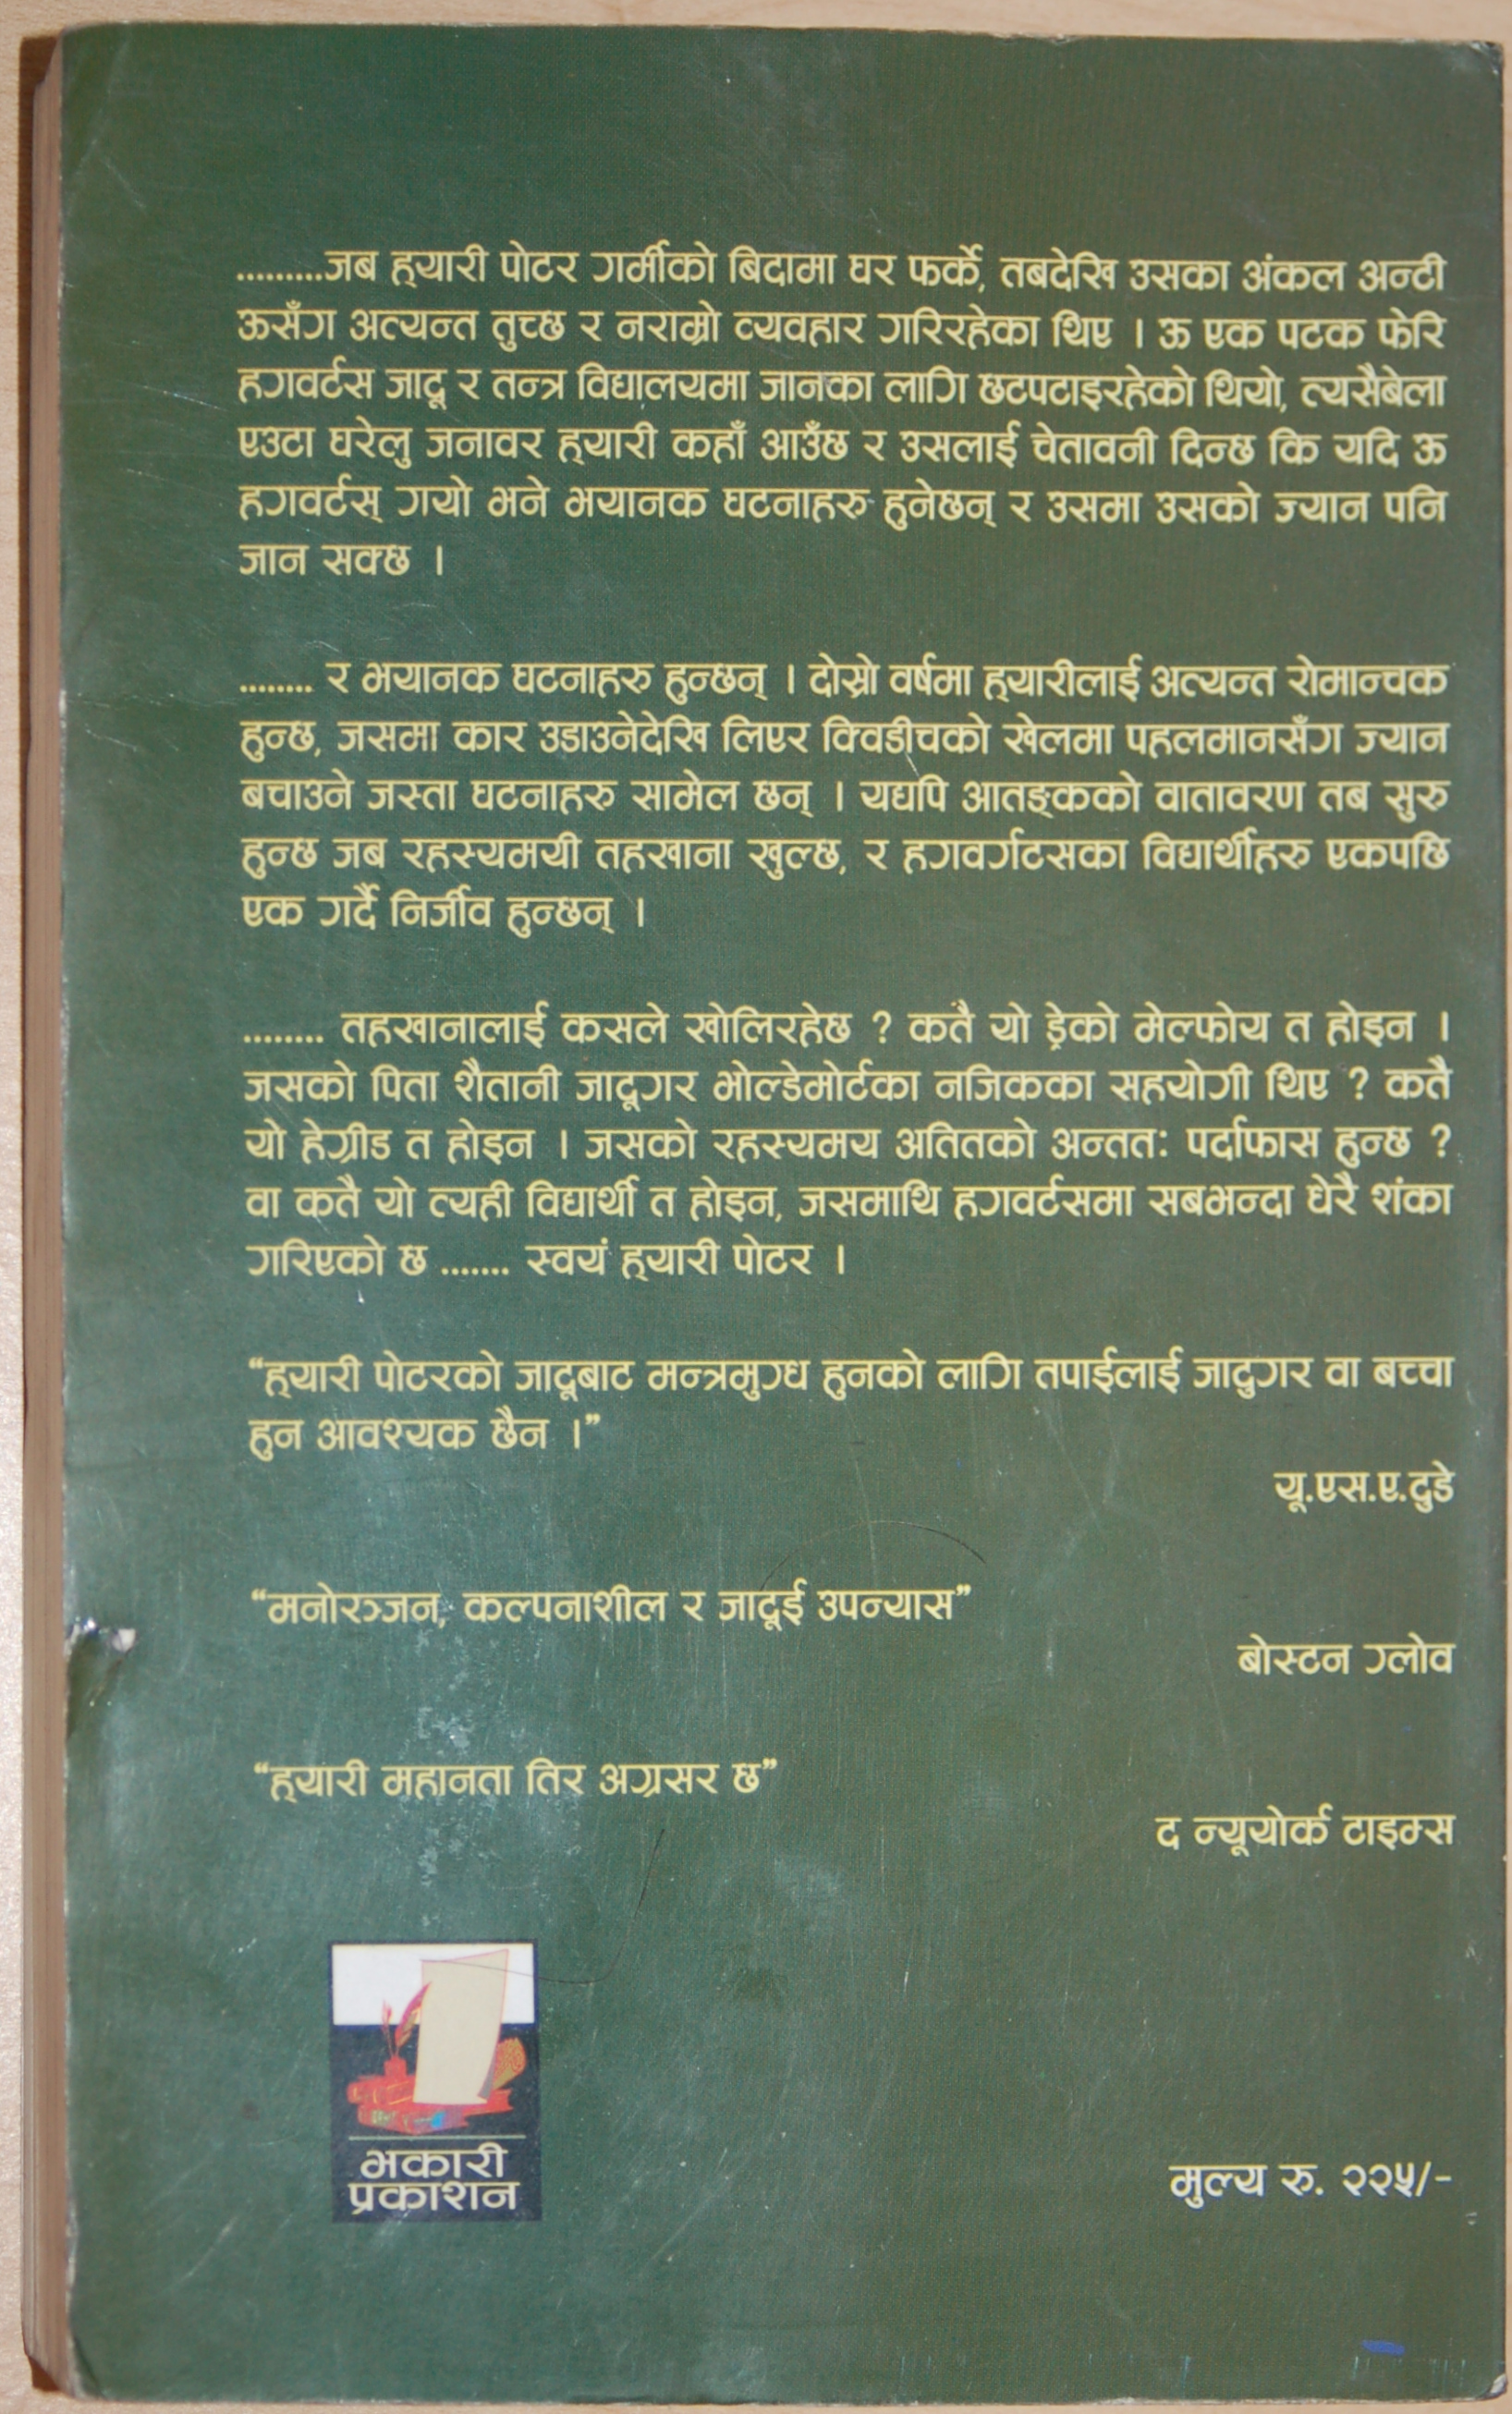 .........जब ह्यारी पोटर गर्मीको बिदामा घर फर्के, तबदेखि उसका अंकल अन्टी
ऊसँग अत्यन्त तुच्छ र नराम्रो व्यवहार गरिरहेका थिए । ऊ एक पटक फेरि
हगवर्टस जादू र तन्त्र विद्यालयमा जानका लागि छटपटाइरहेको थियो, त्यसैबेला
एउटा घरेलु जनावर ह्यारी कहाँ आउँछ र उसलाई चेतावनी दिन्छ कि यदि ऊ
हगवर्टस् गयो भने भयानक घटनाहरु हुनेछन् र उसमा उसको ज्यान पनि
जान सक्छ ।
........ र भयानक घटनाहरु हुन्छन् । दोस्रो वर्षमा ह्यारीलाई अत्यन्त रोमान्चक
हुन्छ, जसमा कार उडाउनेदेखि लिएर क्विडीचको खेलमा पहलमानसँग ज्यान
बचाउने जस्ता घटनाहरु सामेल छन् । यद्यपि आतङ्कको वातावरण तब सुरु
हुन्छ जब रहस्यमयी तहखाना खुल्छ, र हगवर्गटसका विद्यार्थीहरु एकपछि
एक गर्दै निर्जीव हुन्छन् ।
........ तहखानालाई कसले खोलिरहेछ ? कतै यो ड्रेको मेल्फोय त होइन ।
जसको पिता शैतानी जादूगर भोल्डेमोर्टका नजिकका सहयोगी थिए ? कतै
यो हेग्रीड त होइन । जसको रहस्यमय अतितको अन्ततः पर्दाफास हुन्छ ?
वा कतै यो त्यही विद्यार्थी त होइन, जसमाथि हगवर्टसमा सबभन्दा धेरै शंका
गरिएको छ ....... स्वयं ह्यारी पोटर ।
“ह्यारी पोटरको जादूबाट मन्त्रमुग्ध हुनको लागि तपाईलाई जादुगर वा बच्चा
हुन आवश्यक छैन ।”
यू.एस.ए.टुडे
“मनोरञ्जन, कल्पनाशील र जादूई उपन्यास”
बोस्टन ग्लोव
“ह्यारी महानता तिर अग्रसर छ”
द न्यूयोर्क टाइम्स
भकारी
प्रकाशन
मुल्य रु. २२५/-